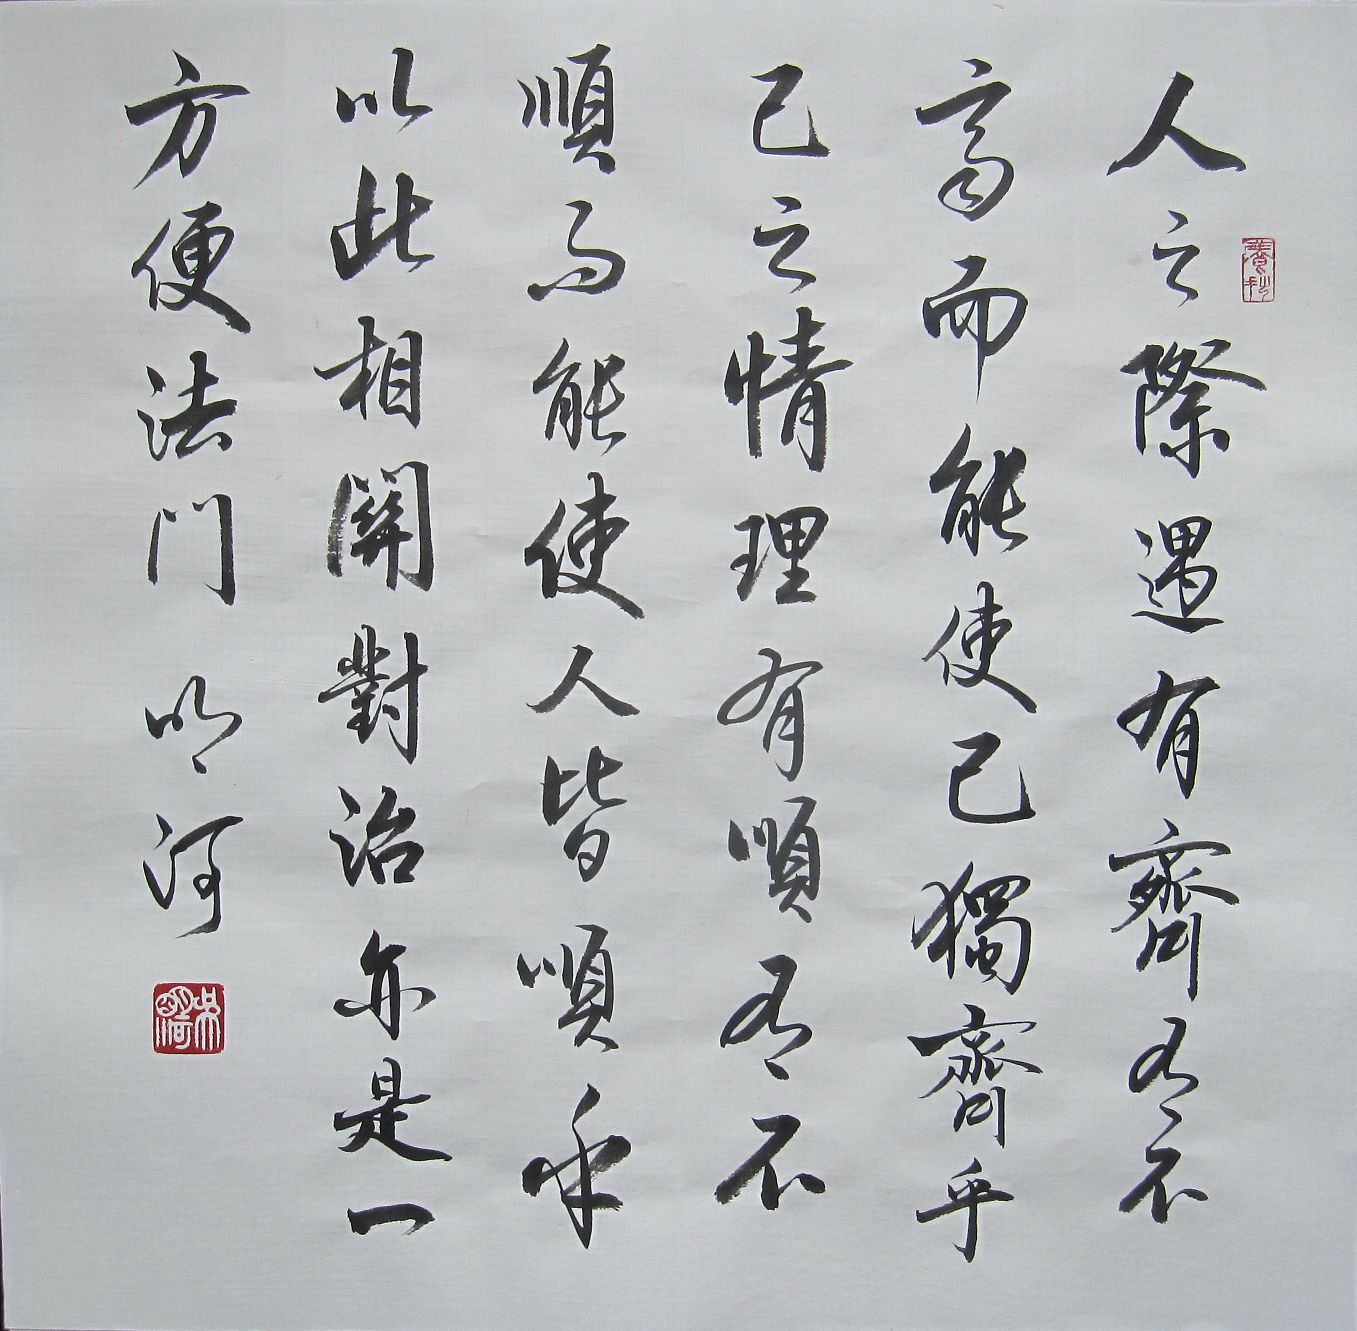 人之際遇有齊有不
齊而能使己獨齊乎
己之情理有順有不
順而能使人皆順乎
以此相關對治亦是一
方便法門 明河
養拙
明河